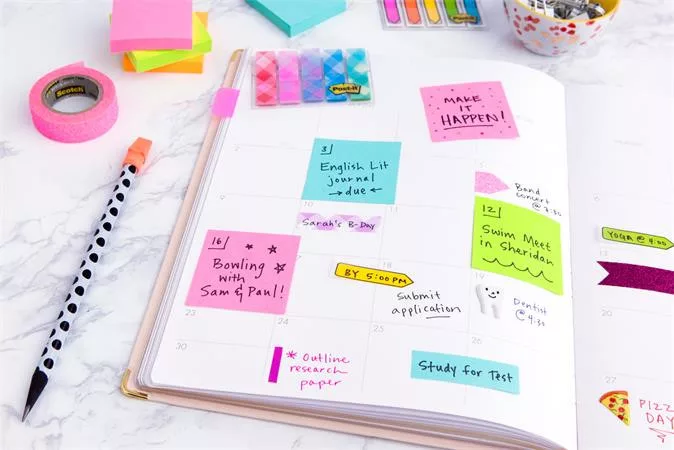 Scotch
Post-it
Post-it
MAKE
IT
HAPPEN!
3
English Lit
journal
→due←
9
10
11
Sarah's B-Day
Band
concert
@ 7:30
12
Swim Meet
in Sheridan
YOGA @ 4:00
16
Bowling
with
Sam & Paul!
17
18
19
BY 5:00 PM
Submit
application
Dentist
@ 4:30
20
23
24
25
26
27
30
* Outline
research
paper
Study for Test
PIZZ
DAY